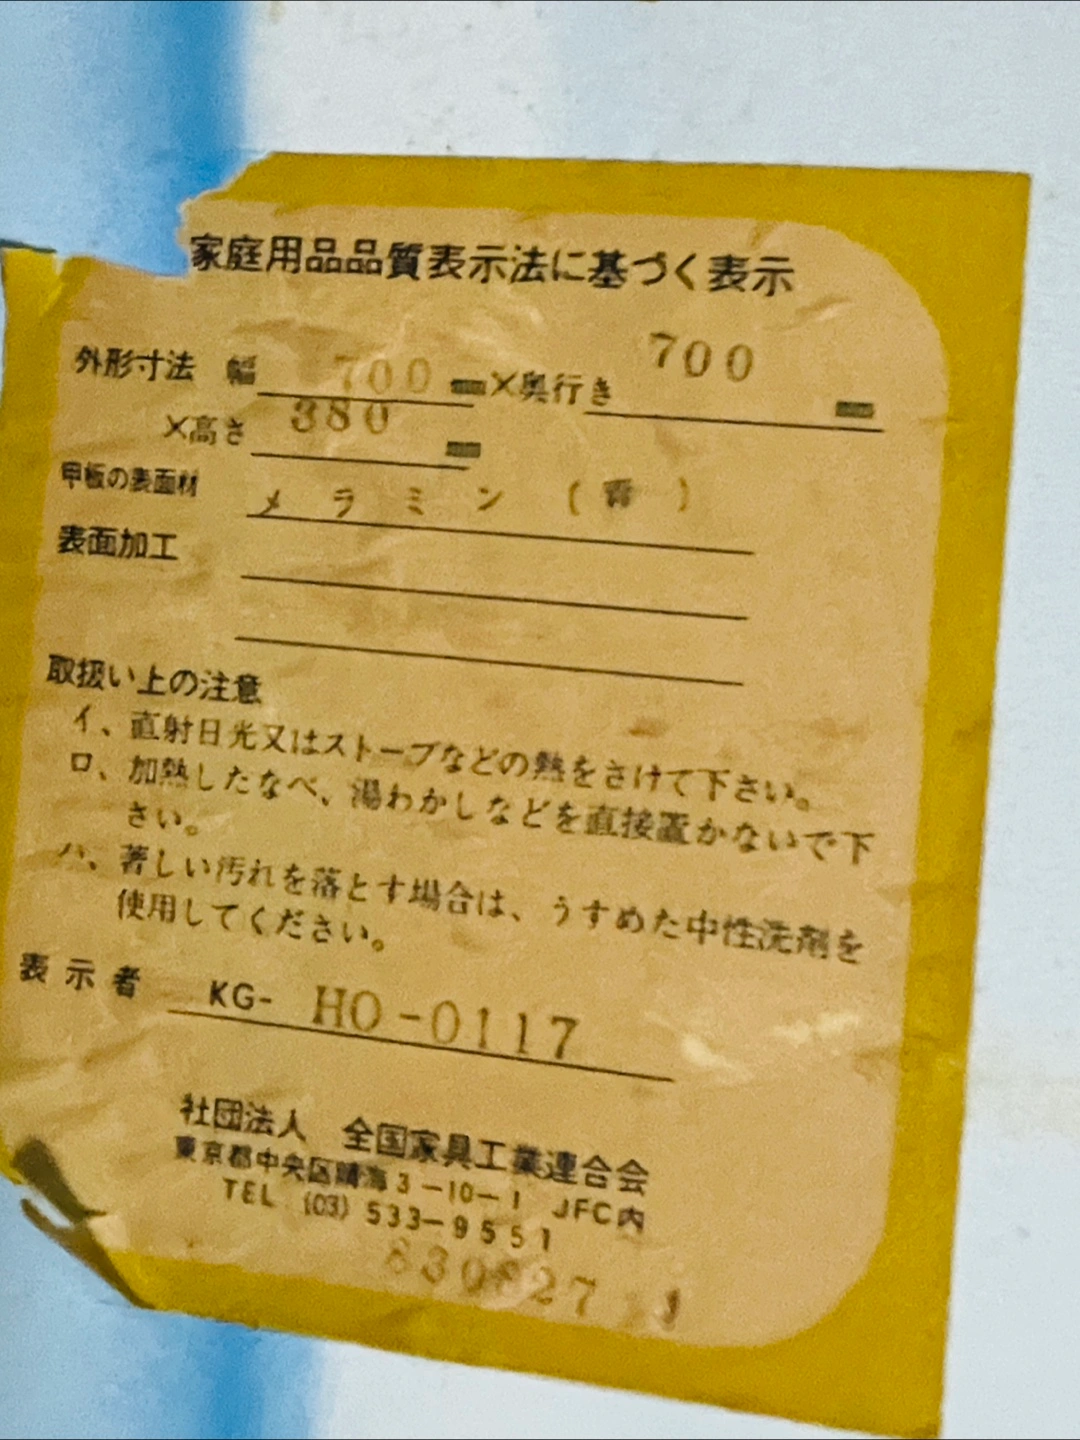 家庭用品品質表示法に基づく表示
外形寸法 幅 700 ㎜×奥行き 700 ㎜
×高さ 380 ㎜
甲板の表面材 メラミン(青)
表面加工
取扱い上の注意
イ、直射日光又はストーブなどの熱をさけて下さい。
ロ、加熱したなべ、湯わかしなどを直接置かないで下
さい。
ハ、著しい汚れを落とす場合は、うすめた中性洗剤を
使用してください。
表示者 KG- HO-0117
社団法人 全国家具工業連合会
東京都中央区晴海3-10-1 JFC内
TEL (03) 533-9551
830827 J